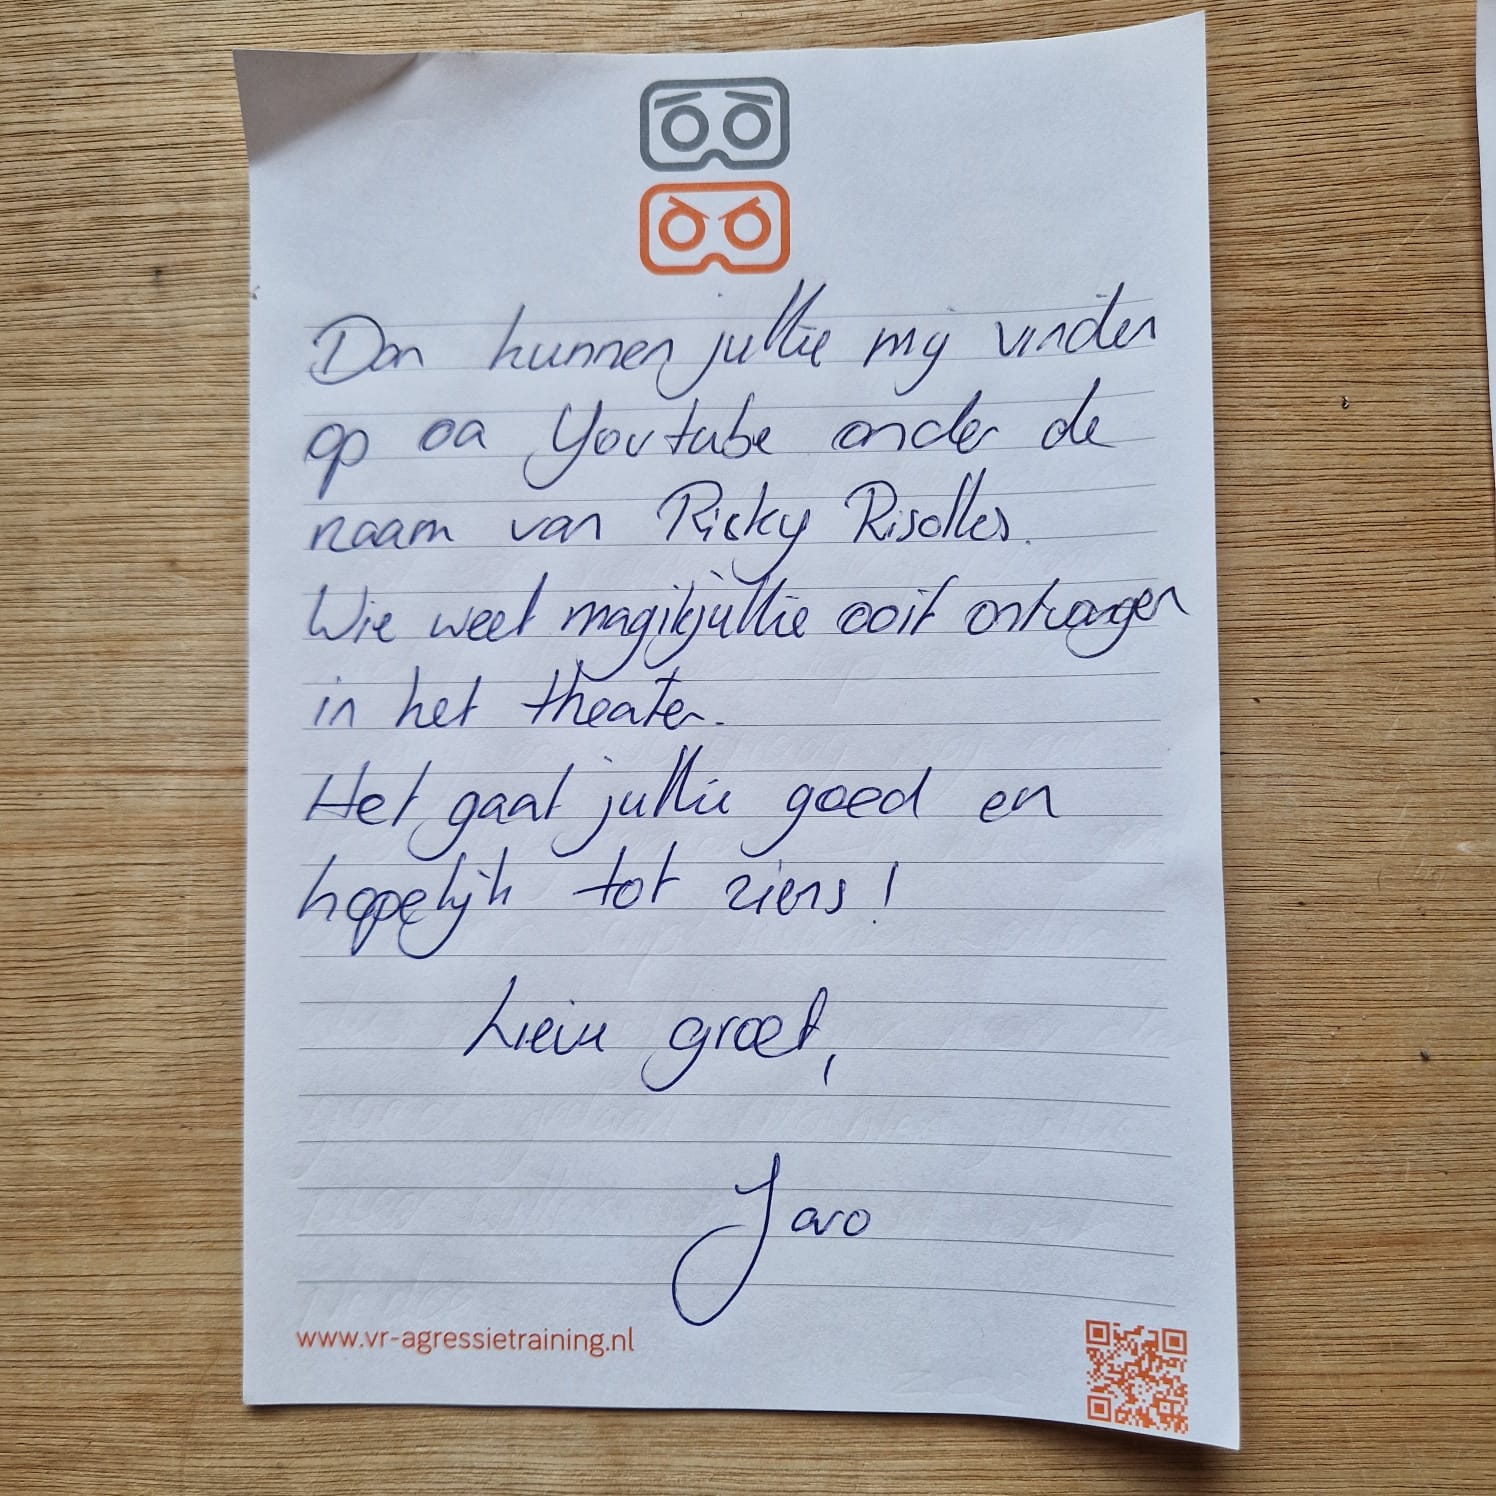 Dan kunnen jullie mij vinden
op oa Youtube onder de
naam van Ricky Risolles.
Wie weet mag ik jullie ooit ontvangen
in het theater.
Het gaat jullie goed en
hopelijk tot ziens!
Lieve groet,
Jaro
www.vr-agressietraining.nl